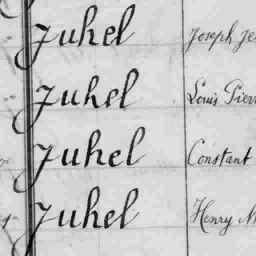 Juhel Joseph
Juhel Louis
Juhel Constant
Juhel Henry